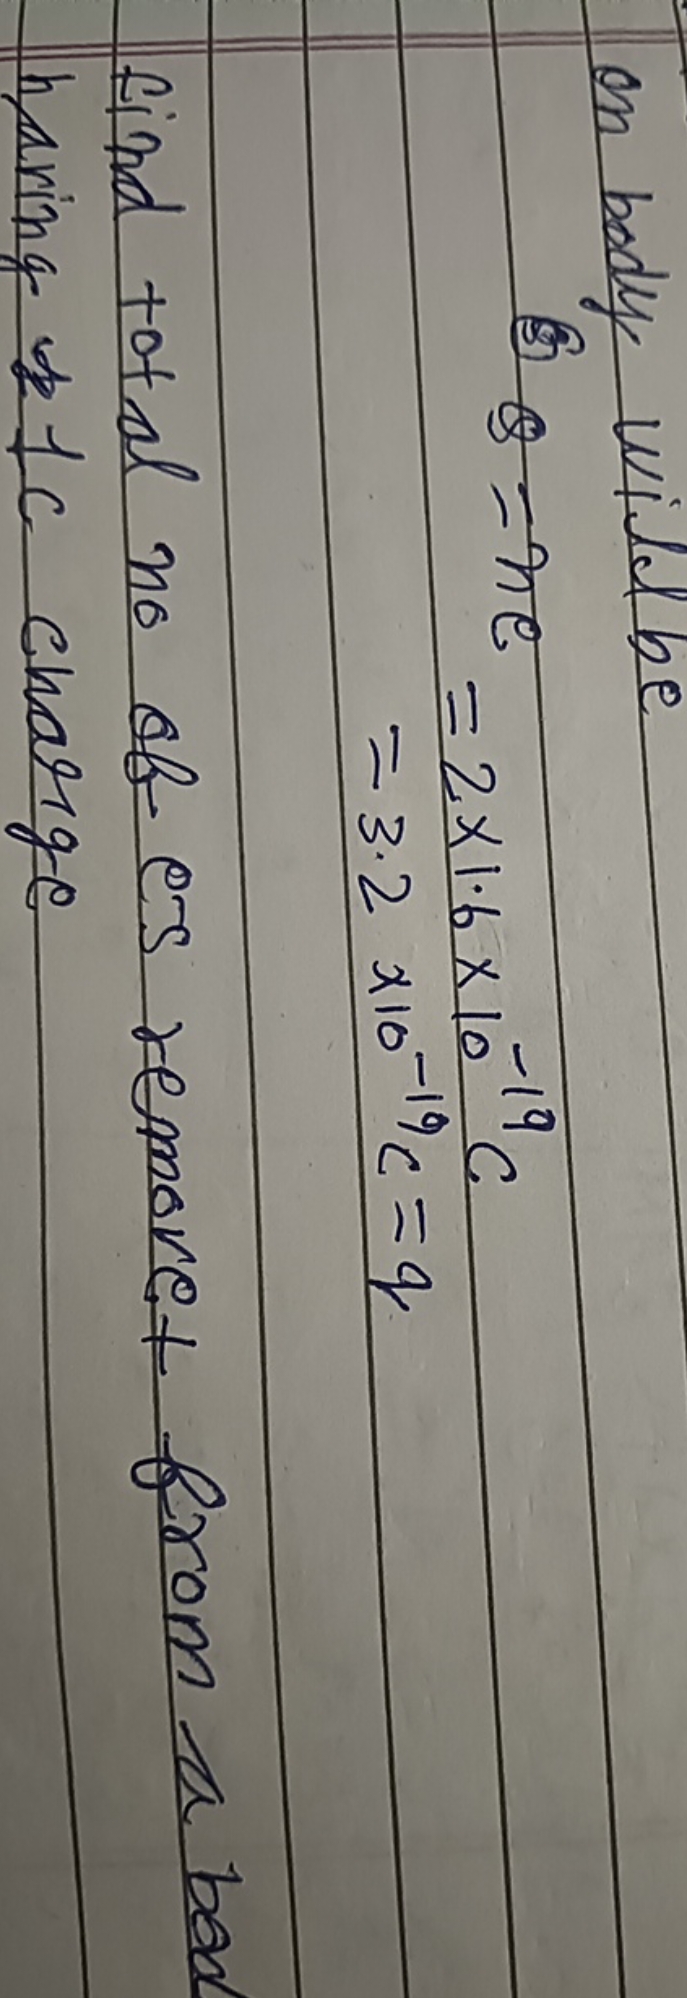 on body will be
q = ne
= 2×1.6×10⁻¹⁹ C
= 3.2 ×10⁻¹⁹ C = q
find total no of e⁻s removet from a bod
having 1C charge